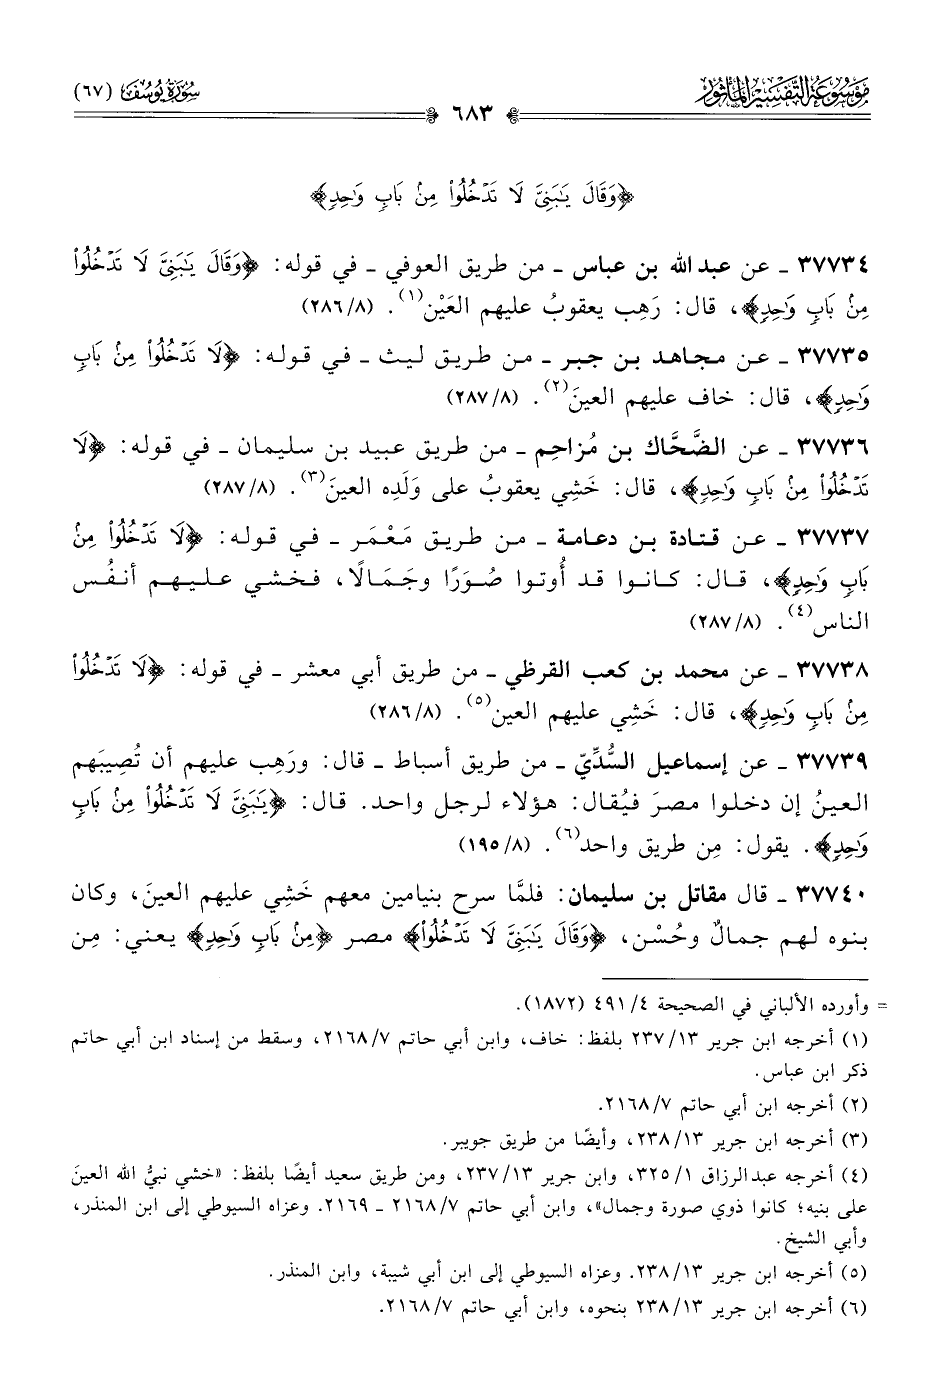 مَوْسُوعَة التَّفْسِير المَأْثُور
سُورَة يُوسُف (٦٧)
٦٨٣
﴿وَقَالَ يَٰبَنِىَّ لَا تَدْخُلُوا۟ مِنۢ بَابٍ وَٰحِدٍ﴾
٣٧٧٣٤ ـ عن عبد الله بن عباس ـ من طريق العوفي ـ في قوله: ﴿وَقَالَ يَٰبَنِىَّ لَا تَدْخُلُوا۟
مِنۢ بَابٍ وَٰحِدٍ﴾، قال: رَهِب يعقوبُ عليهم العَيْن(١). (٨/ ٢٨٦)
٣٧٧٣٥ ـ عن مجاهد بن جبر ـ من طريق ليث ـ في قوله: ﴿لَا تَدْخُلُوا۟ مِنۢ بَابٍ
وَٰحِدٍ﴾، قال: خاف عليهم العينَ(٢). (٨/ ٢٨٧)
٣٧٧٣٦ ـ عن الضَّحَّاك بن مُزاحِم ـ من طريق عبيد بن سليمان ـ في قوله: ﴿لَا
تَدْخُلُوا۟ مِنۢ بَابٍ وَٰحِدٍ﴾، قال: خَشِي يعقوبُ على وَلَدِه العينَ(٣). (٨/ ٢٨٧)
٣٧٧٣٧ ـ عن قتادة بن دعامة ـ من طريق مَعْمَر ـ في قوله: ﴿لَا تَدْخُلُوا۟ مِنۢ
بَابٍ وَٰحِدٍ﴾، قال: كانوا قد أُوتوا صُوَرًا وجَمَالًا، فخشي عليهم أنفُس
الناس(٤). (٨/ ٢٨٧)
٣٧٧٣٨ ـ عن محمد بن كعب القرظي ـ من طريق أبي معشر ـ في قوله: ﴿لَا تَدْخُلُوا۟
مِنۢ بَابٍ وَٰحِدٍ﴾، قال: خَشِي عليهم العين(٥). (٨/ ٢٨٦)
٣٧٧٣٩ ـ عن إسماعيل السُّدِّيّ ـ من طريق أسباط ـ قال: ورَهِب عليهم أن تُصِيبَهم
العينُ إن دخلوا مصرَ فيُقال: هؤلاء لرجل واحد. قال: ﴿يَٰبَنِىَّ لَا تَدْخُلُوا۟ مِنۢ بَابٍ
وَٰحِدٍ﴾. يقول: مِن طريق واحد(٦). (٨/ ١٩٥)
٣٧٧٤٠ ـ قال مقاتل بن سليمان: فلمَّا سرح بنيامين معهم خَشِي عليهم العينَ، وكان
بنوه لهم جمالٌ وحُسْن، ﴿وَقَالَ يَٰبَنِىَّ لَا تَدْخُلُوا۟﴾ مصر ﴿مِنۢ بَابٍ وَٰحِدٍ﴾ يعني: مِن
= وأورده الألباني في الصحيحة ٤/ ٤٩١ (١٨٧٢).
(١) أخرجه ابن جرير ١٣/ ٢٣٧ بلفظ: خاف، وابن أبي حاتم ٧/ ٢١٦٨، وسقط من إسناد ابن أبي حاتم
ذكر ابن عباس.
(٢) أخرجه ابن أبي حاتم ٧/ ٢١٦٨.
(٣) أخرجه ابن جرير ١٣/ ٢٣٨، وأيضًا من طريق جويبر.
(٤) أخرجه عبدالرزاق ١/ ٣٢٥، وابن جرير ١٣/ ٢٣٧، ومن طريق سعيد أيضًا بلفظ: «خشي نبيُّ الله العينَ
على بنيه؛ كانوا ذوي صورة وجمال»، وابن أبي حاتم ٧/ ٢١٦٨ ـ ٢١٦٩. وعزاه السيوطي إلى ابن المنذر،
وأبي الشيخ.
(٥) أخرجه ابن جرير ١٣/ ٢٣٨. وعزاه السيوطي إلى ابن أبي شيبة، وابن المنذر.
(٦) أخرجه ابن جرير ١٣/ ٢٣٨ بنحوه، وابن أبي حاتم ٧/ ٢١٦٨.